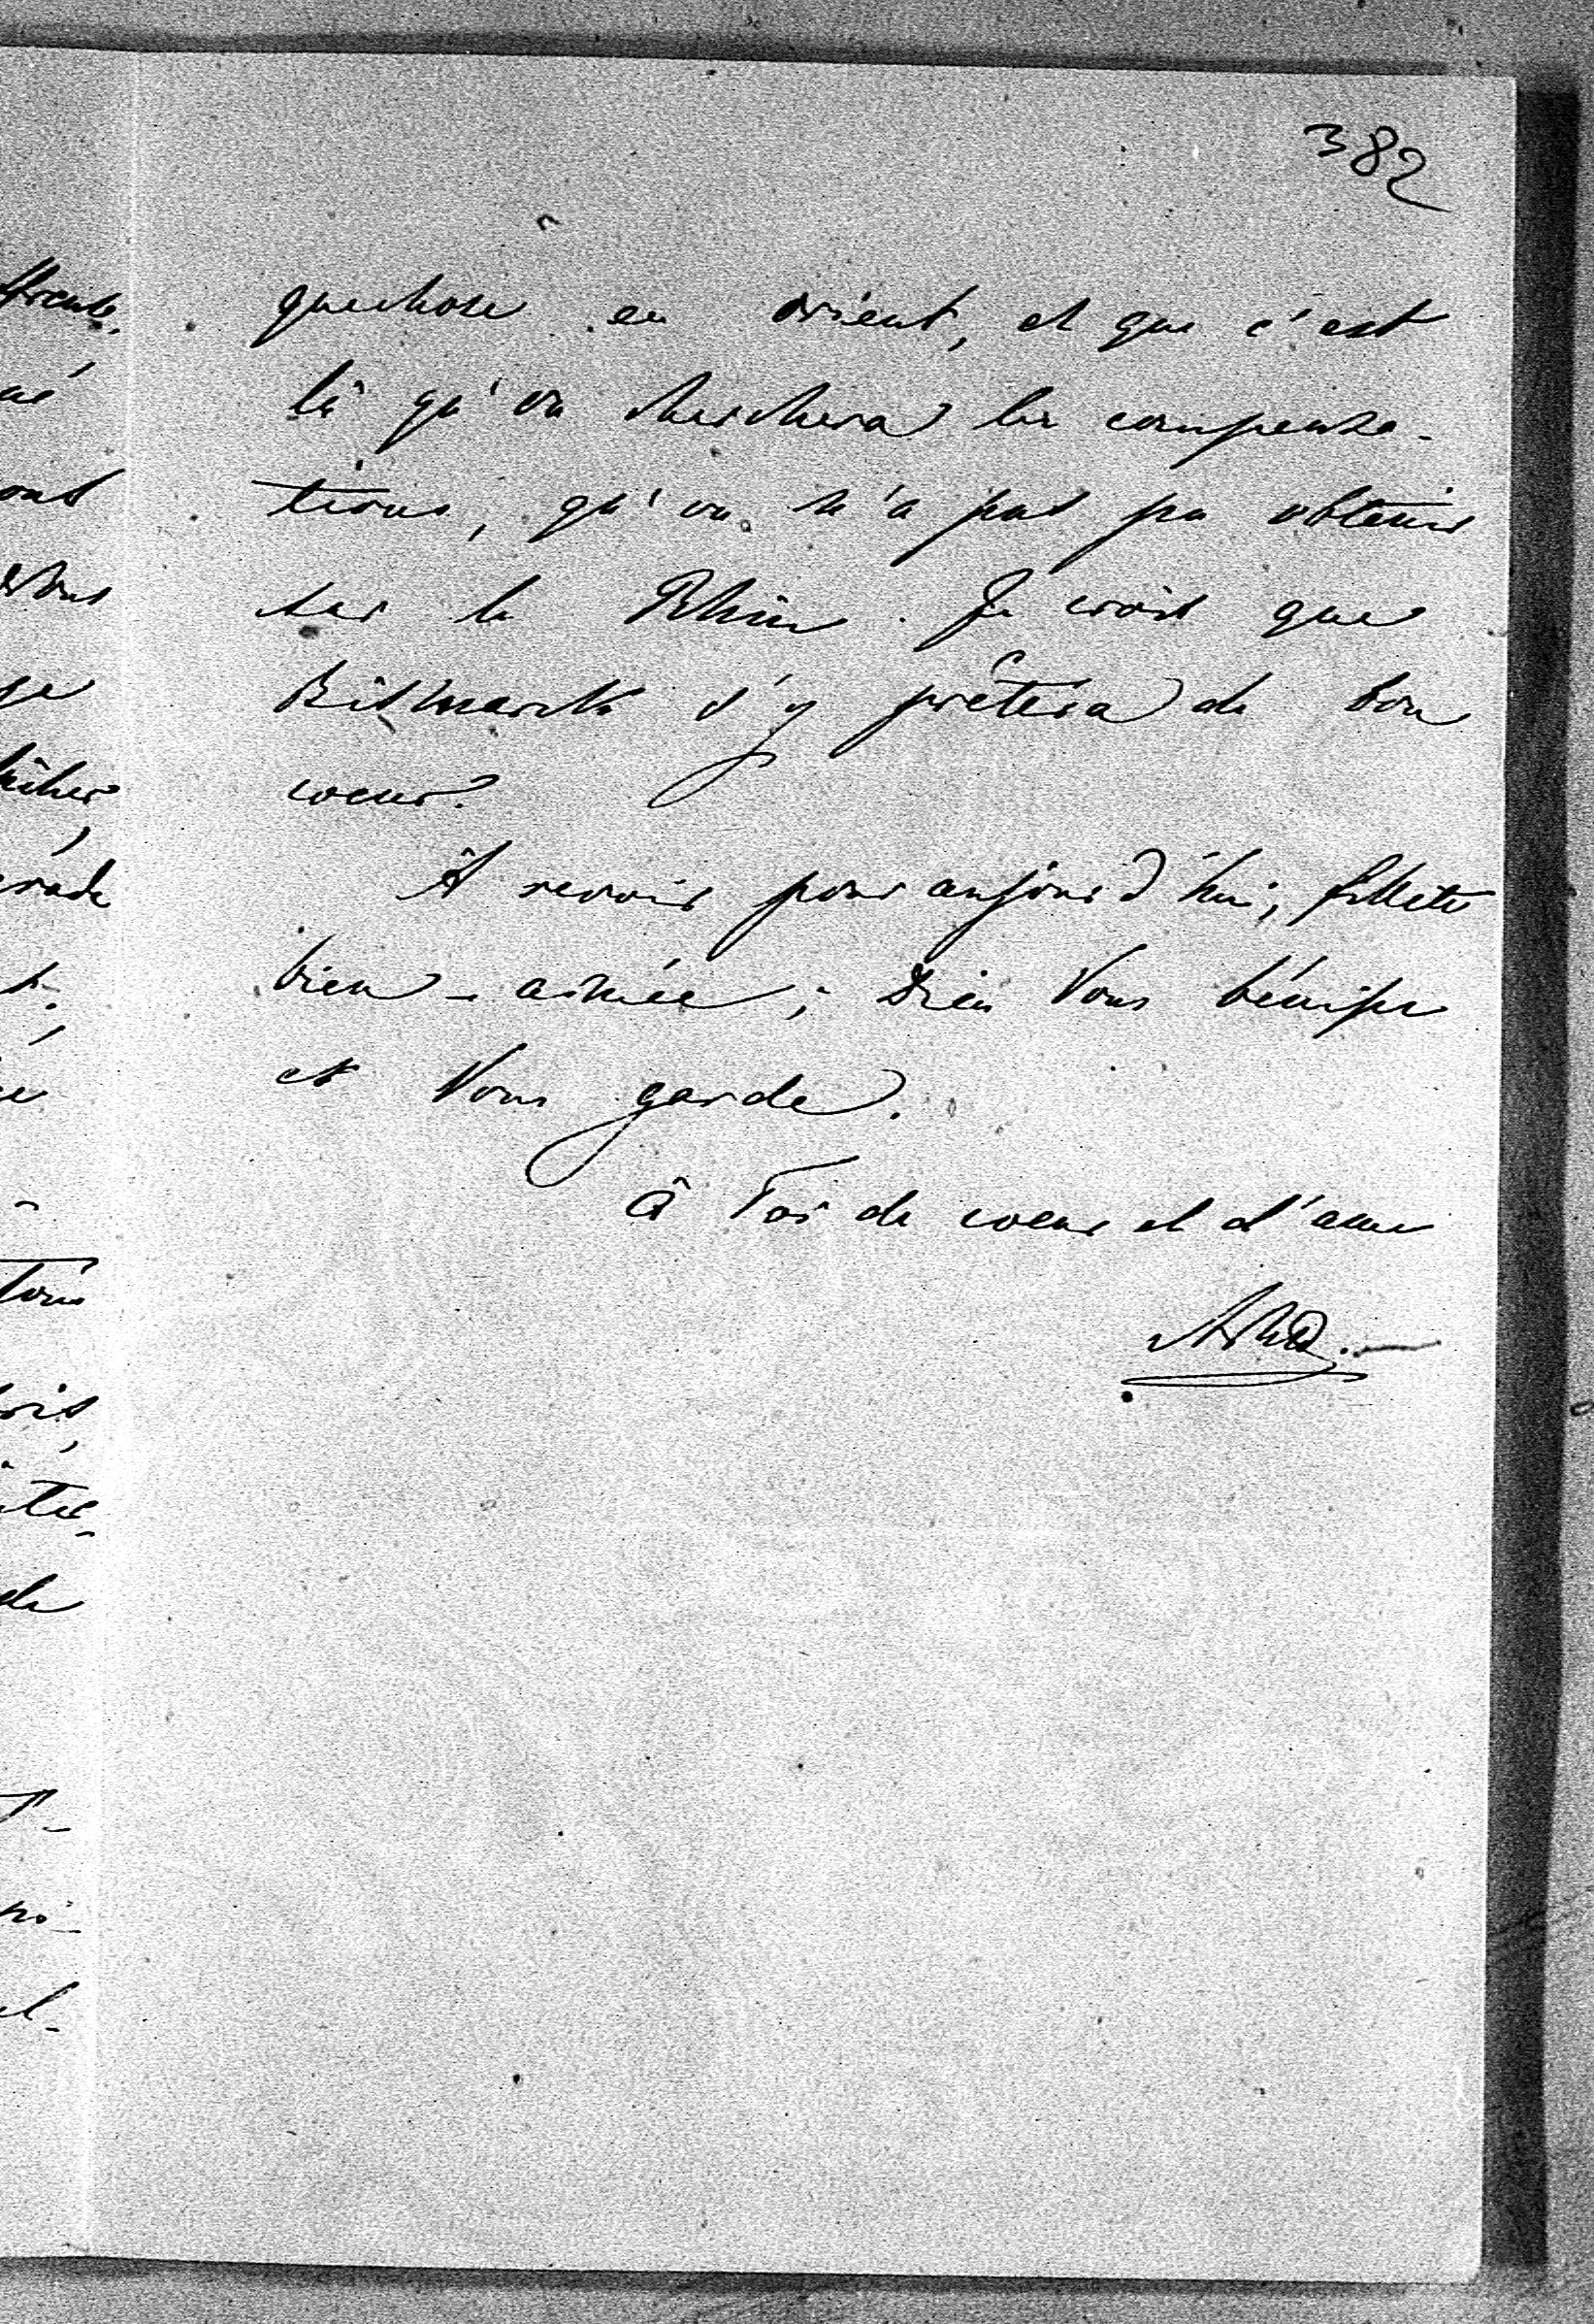 382
quechose en orient, et que c'est
là qu'on cherchera les compensa-
tions, qu'on n'a pas pu obtenir
sur le Rhin. Je crois que
Bismarck s'y prêtera de bon
coeur.
À revoir pour aujourd'hui, fillette
bien-aimée; Dieu Vous bénisse
et Vous garde.
à Toi de coeur et d'ame